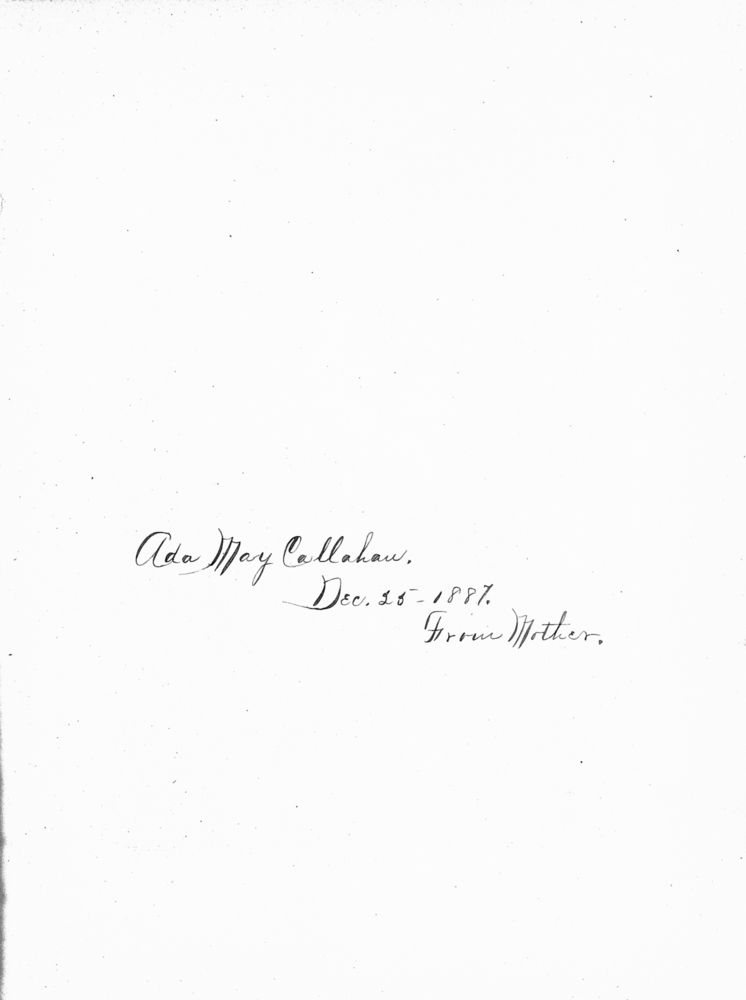 Ada May Callahan.
Dec. 25 - 1887.
From Mother.